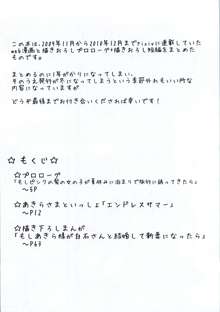 この本は、2009年11月から2010年12月までpixivに連載していた
web漫画と描きおろしプロローグ+描きおろし短編をまとめた
ものです。
まとめるのに1年がかりになってしまい、
そのうえ発行が冬になってしまうという季節外れもいい所な
内容になっていますが
どうか最後までお付き合いくだされば幸いです!
☆ もくじ ☆
☆プロローグ
「もしピンクの髪の女の子が夏休みに泊まりで旅行に誘ってきたら」
～5P
☆あきらさまといっしょ「エンドレスサマー」
～P12
☆描き下ろしまんが
「もしあきら様が白石さんと結婚して新妻になったら」
～P69